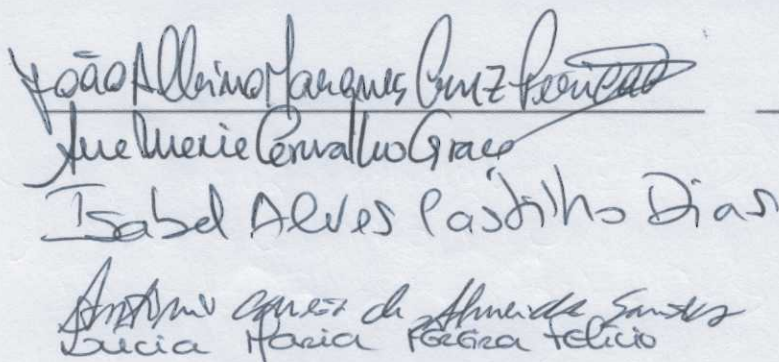 João Albino Marques Cruz
Ana Maria Carvalho Graça
Isabel Alves Castilho Dias
António de Almeida Santos
Lúcia Maria Pereira Felício